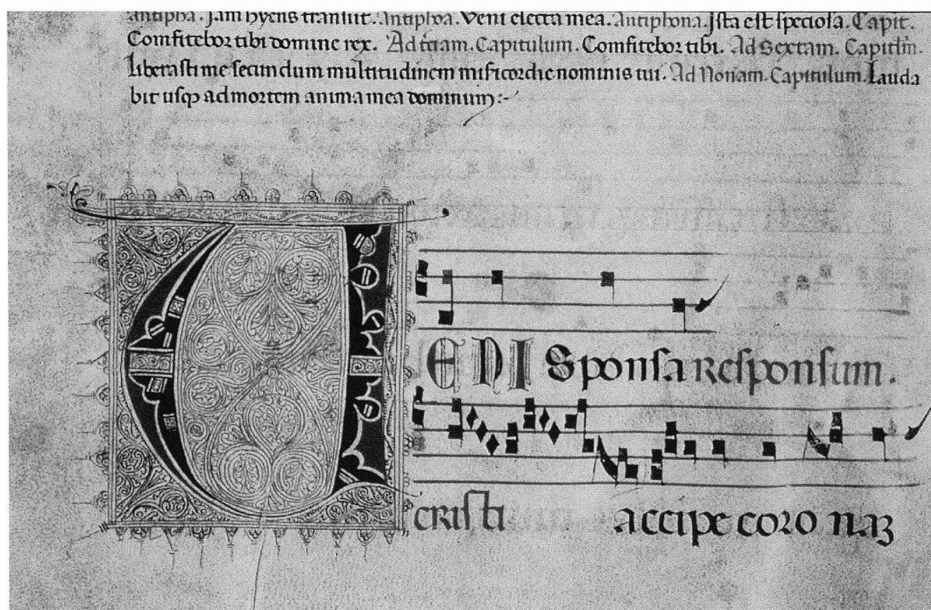 antipha. Jam hyens transiit. Antiphona. Veni electa mea. Antiphona. Ista est speciosa. Capit.
Comfitebor tibi domine rex. Ad tciam. Capitulum. Comfitebor tibi. Ad Sextam. Capitlm.
Liberasti me secundum multitudinem misicordie nominis tui. Ad Nonam. Capitulum. Lauda
bit usqz ad mortem anima mea dominum:-
VENI Sponsa responsum.
cristi accipe coro naz